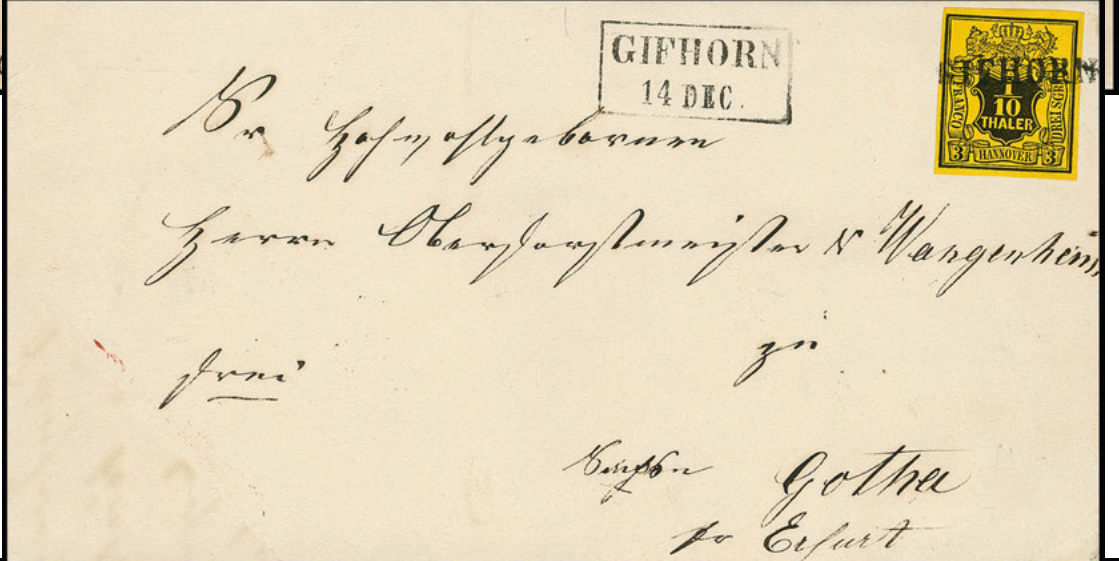 GIFHORN
14 DEC.
GIFHORN
1
10
THALER
FRANCO
DREI SGR
3 HANNOVER 3
Sr Hochwohlgebornen
Herrn Oberforstmeister v Wangenheim
frei
zu
Gotha
pr Erfurt